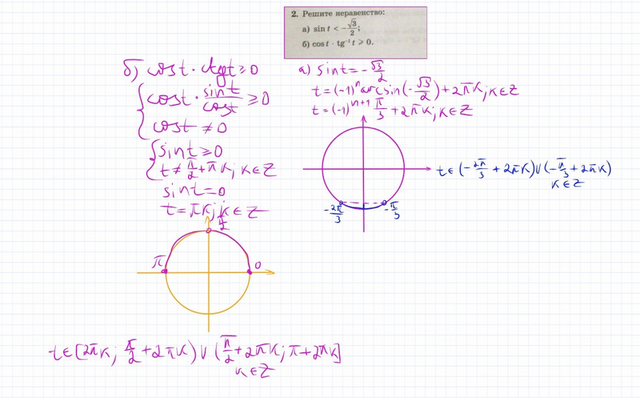 2. Решите неравенство:
а) sin t < -√3/2;
б) cos t · tg⁻¹ t ≥ 0.
б) cos t · ctg t ≥ 0
{ cos t · sin t/cos t ≥ 0
cos t ≠ 0
{ sin t ≥ 0
t ≠ π/2 + πk, k ∈ Z
sin t = 0
t = πk, k ∈ Z
π/2
π
0
t ∈ [2πk; π/2 + 2πk) ∪ (π/2 + 2πk; π + 2πk]
k ∈ Z
а) sin t = -√3/2
t = (-1)ⁿ arcsin(-√3/2) + 2πk; k ∈ Z
t = (-1)ⁿ⁺¹ π/3 + 2πk; k ∈ Z
t ∈ (-2π/3 + 2πk) ∪ (-π/3 + 2πk)
k ∈ Z
-2π/3
-π/3